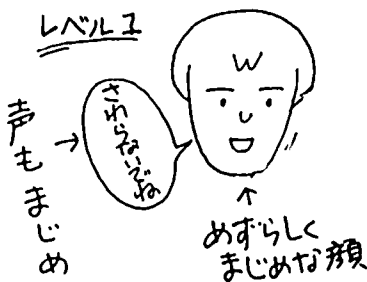 レベル1
声もまじめ
→
さわらないでね
↑
めずらしく
まじめな顔